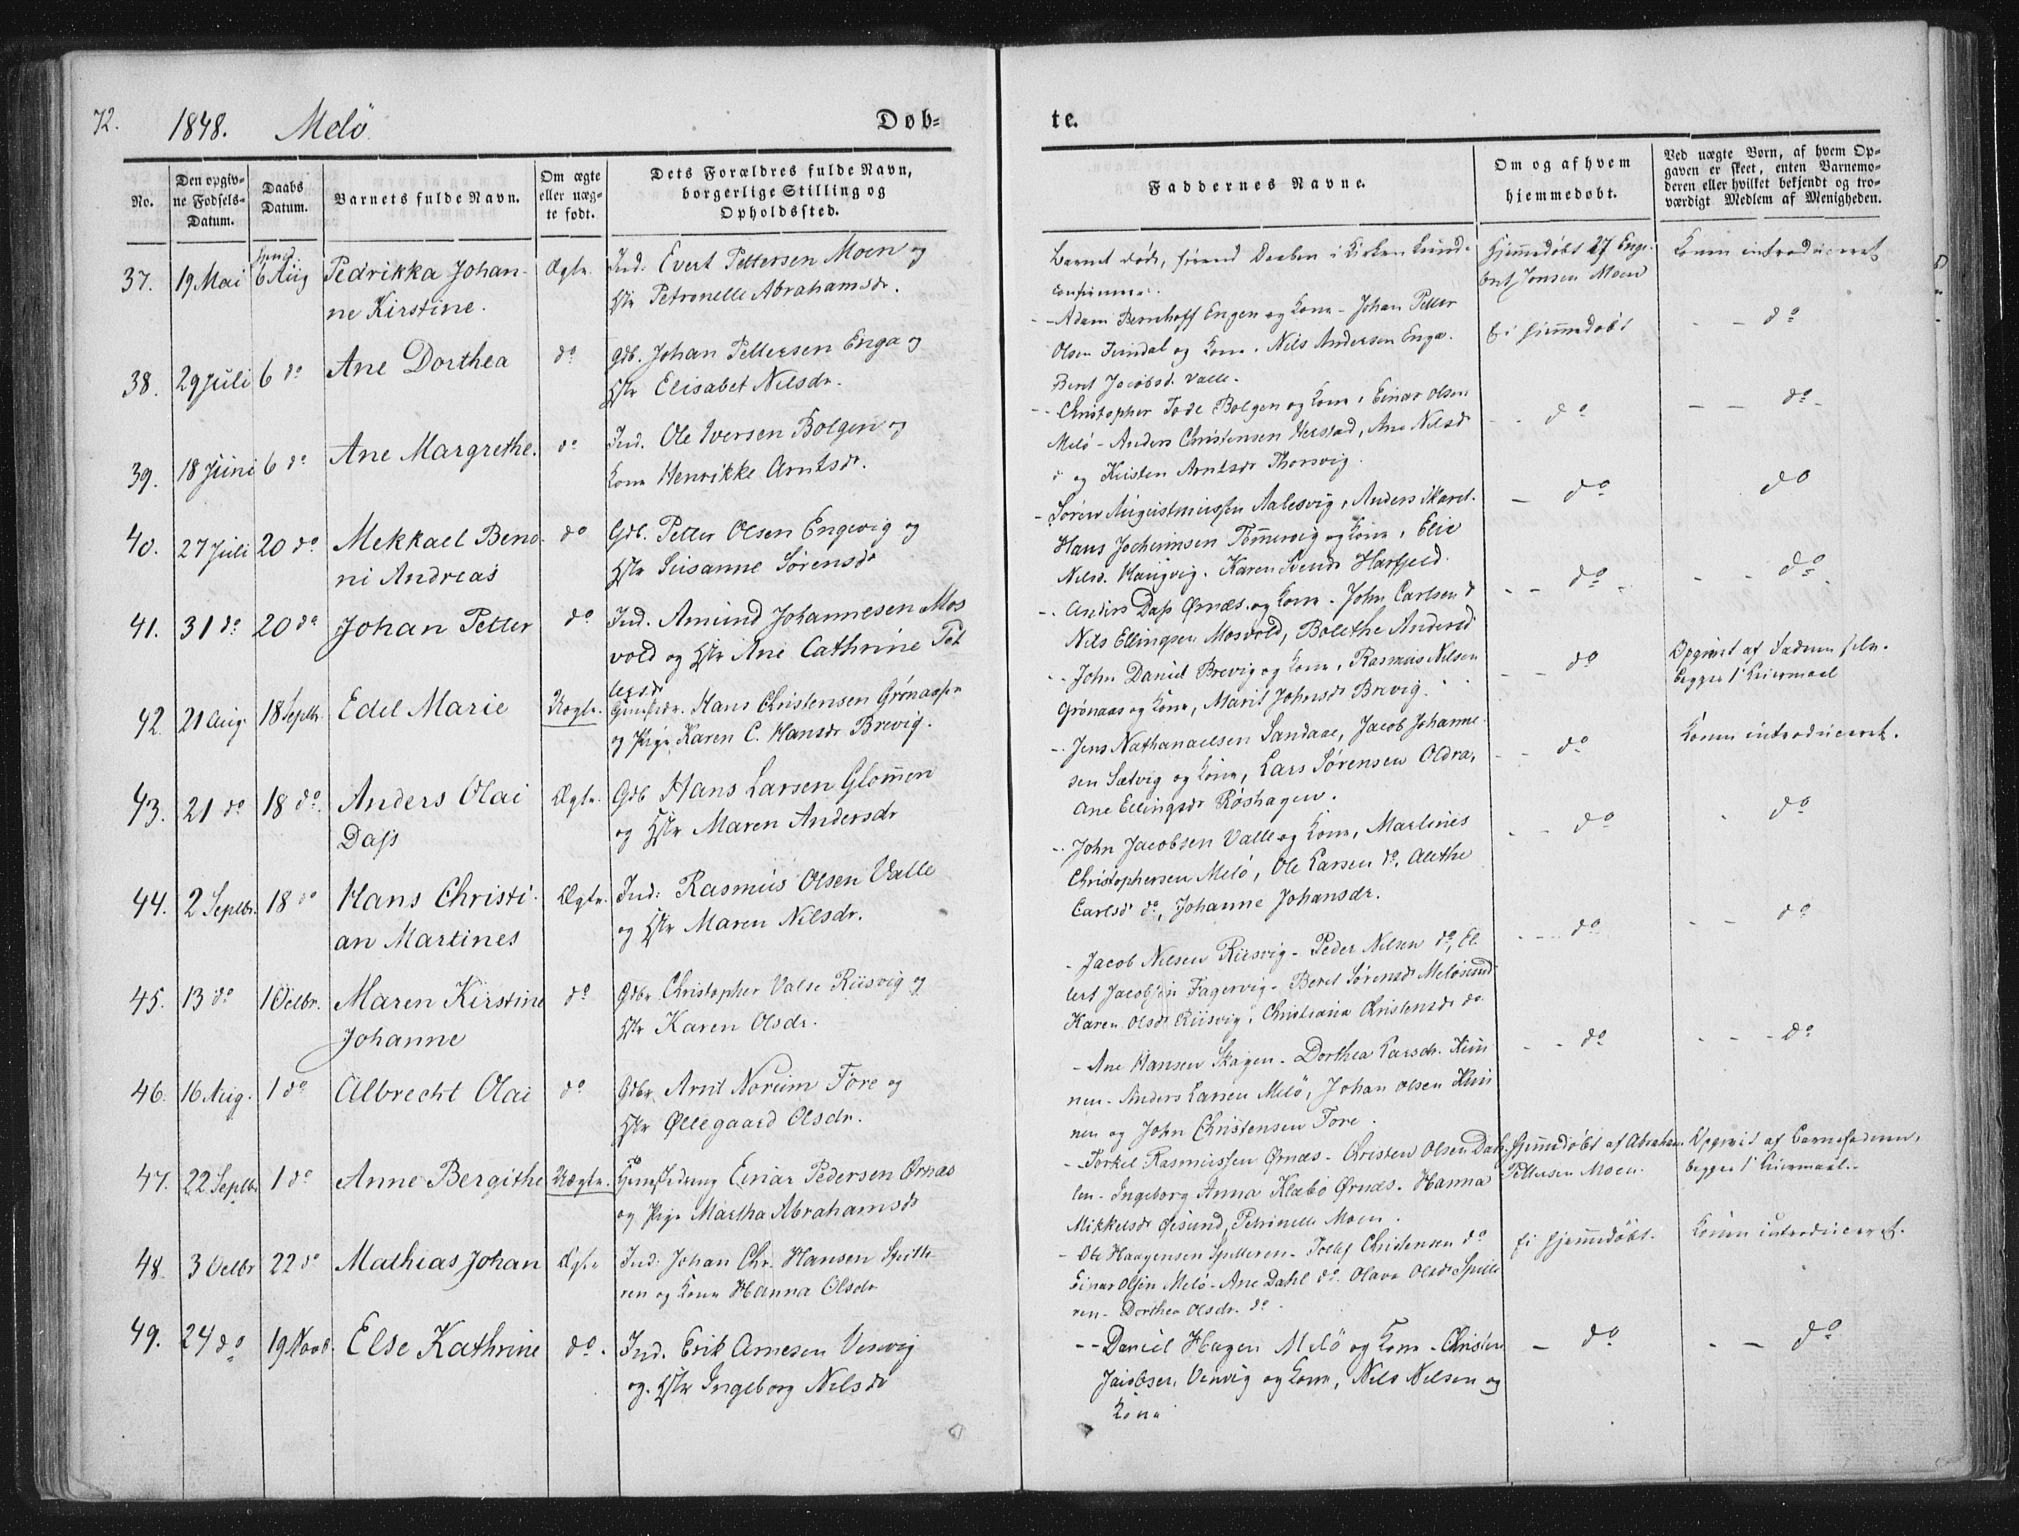 72.
1848. Melö.
Døb-
te.
No.
Den opgiv-
ne Fødsels-
Datum.
Daabs
Datum.
Barnets fulde Navn.
Om ægte
eller uæg-
te født.
Dets Forældres fulde Navn,
borgerlige Stilling og
Opholdssted.
Faddernes Navne.
Om og af hvem
hjemmedøbt.
Ved uægte Børn, af hvem Op-
gaven er skeet, enten Barnemo-
deren eller hvilket bekjendt og tro-
værdigt Medlem af Menigheden.
37. 19 Mai 6 Aug Pedrikka Johan-
ne Kirstine.
Ægte
Ind. Evert Pettersen Moen og
Hstr Petronelle Abrahamsdr.
Barnet døde, førend Daaben i Kirken kunde
confirmeres.
Hjemmedøbt 27 Enge-
bret Jensen Moen
Konen introduceret
38. 29 Juli 6 do Ane Dorthea do
Gdb. Johan Pettersen Enga og
Hstr Elisabet Nilsdr.
-- Adam Bernhoff Engen og Kone - Johan Petter
Olsen og Kone. Nils Andersen Enga.
Beret Jacobsd. Valle.
Ei hjemmedøbt
- - do
39. 18 Juni 6 do Ane Margrethe. do
Ind. Ole Iversen Bolgen og
Kone Henrikke Arntsdr.
-- Christopher Bolgen og Kone, Einar Olsen
Melö - Anders Christensen, Ane Nilsd
do og Kirsten Arntsdr Thorsvig.
- - do
- - do -
40. 27 Juli 20 do Mekkael Beno-
ni Andreas
do
Gdb. Petter Olsen Engevig og
Hstr Susanne Sørensdr
- Søren Augustinussen Aalesvig, Anders Skaret.
Hans Jochimsen og Kone, Elie
Nilsd. Haugvig. Karen Svendsd
- do
do
41. 31 do 20 do Johan Petter do
Ind. Amund Johannesen Mos
vold og Hstr Ane Cathrine Tol
lefsdr
-- Anders Dass Ørnæs og Kone - John Carlsen do
Nils Ellingsen Mosvold, Bolethe Andersd
- - do -
- - do -
42. 21 Aug. 18 Septbr. Edel Marie Uægte.
Hans Christensen Grønaasen
og Pige Karen C. Hansdr Brevig.
-- John Daniel Brevig og Kone, Rasmus Nilsen
Grønaas og Kone, Marit Johnsdr Brevig.
- - do
Opgivet af Faderen selv.
begges 1ste Leiermaal
43. 21 do 18 do Anders Olai
Dass
Ægte.
Gdb Hans Larsen Glommen
og Hstr Maren Andersdr
-- Jens Nathanaelsen Sandaae, Jacob Johanne-
sen Sætvig og Kone, Lars Sørensen Oldra,
Ane Ellingsdr Røshagen.
- - do
Konen introduceret.
44. 2 Septbr. 18 do Hans Christi-
an Martines
Ægte.
Ind: Rasmus Olsen Valle
og Hstr Maren Nilsdr.
-- John Jacobsen Valle og Kone, Martines
Christophersen Melö, Ole Larsen do, Alethe
Carlsd do, Johanne Johansdr.
- - do
- do
45. 13 do 1 Octbr. Maren Kirstine
Johanne
do
Gdbr Christopher Valse Riisvig og
Hstr Karen Olsdr.
- Jacob Nilsen Riisvig - Peder Nilsen do, El-
lert Jacobsen Fagervig - Beret Sørensdr Melösund
Karen Olsdr Riisvig, Christiana Christensdr do
- - do
- - do
46. 16 Aug. 1 do Albrecht Olai do
Gdbr Arnt Noreim Fore og
Hstr Øllegaard Olsdr.
- Ane Hansen Skagen - Dorthea Larsdr. Kun
nen - Anders Larsen Melö, Johan Olsen Kun
nen og John Christensen Fore.
- - do
- - - do
47. 22 Septbr 1 do Anne Bergithe Uægte.
Einar Pedersen Ørnæs
og Pige Martha Abrahamsdr
- Torkel Rasmussen Ørnæs - Christen Olsen Dah
len - Ingeborg Anna Klæbo Ørnæs. Hanna
Mikkelsdr Øesund, Petrinelle Moen.
Hjemmedøbt af Abraham
Pettersen Moen.
Opgivet af Barnefaderen,
begges 1ste Leiermaal.
48. 3 Octbr 22 do Mathias Johan Ægte
Ind. Johan Chr. Hansen Spille
ren og Kone Hanna Olsdr
- Ole Haagensen Spilleren - Tollef Christensen do
Einar Olsen Melö - Ane Dahl do. Olava Olsdr Spille
ren - Dorthea Olsdr. do.
Ei hjemmedøbt.
Konen introduceret.
49. 24 do 19 Novb. Else Kathrine do.
Ind. Erik Arnesen Venvig
og. Hstr Ingeborg Nilsdr
-- Daniel Hagen Melö og Kone - Christen
Jacobsen Venvig og Kone, Nils Nilsen og
Kone
- do
- - do